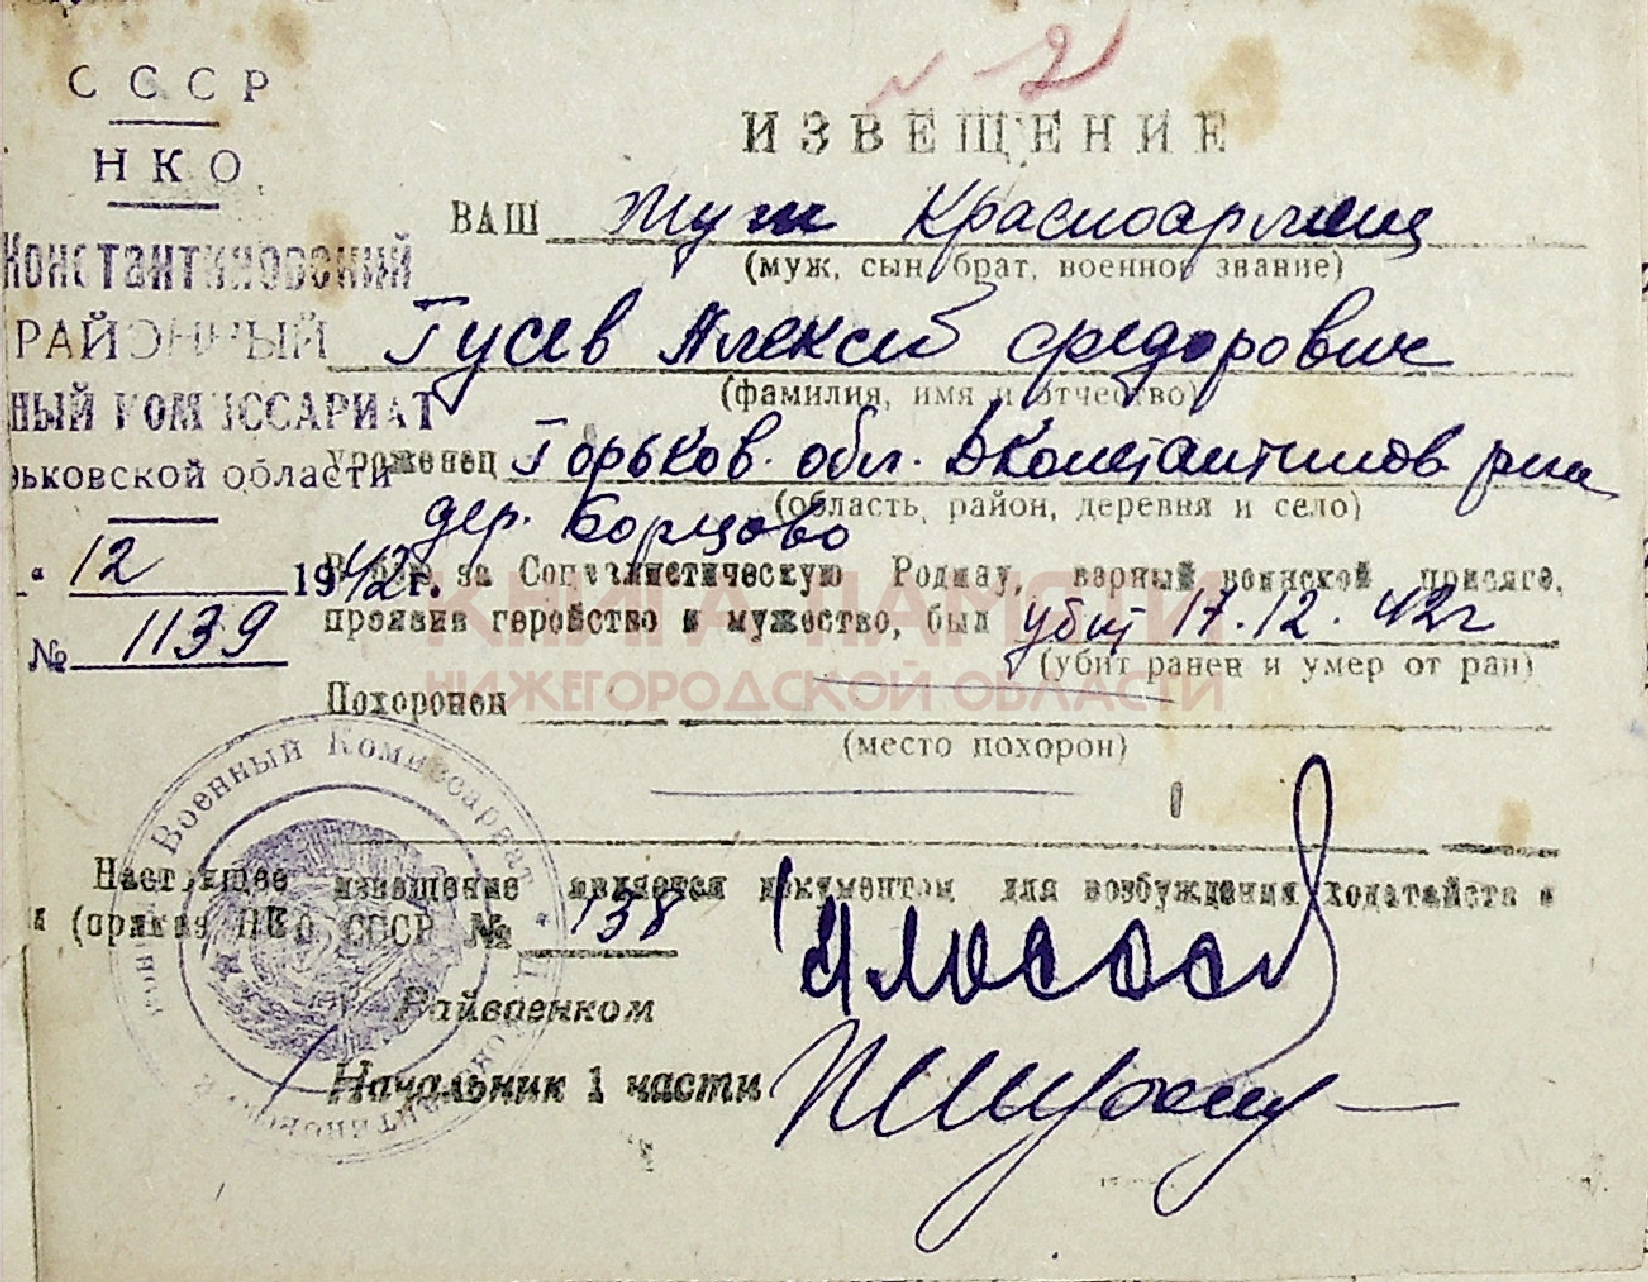 № 2
СССР
НКО
Константиновский
РАЙОННЫЙ
НЫЙ КОМИССАРИАТ
рьковской области
" 12 1942 г.
№ 1139
ИЗВЕЩЕНИЕ
ВАШ муж красноармеец
(муж, сын, брат, военное звание)
Гусев Алексей Федорович
(фамилия, имя и отчество)
уроженец Горьков. обл. Д Константинов р-на
(область, район, деревня и село)
дер. Борцово
В бою за Социалистическую Родину, верный воинской присяге,
проявив геройство и мужество, был убит 17.12.42г
(убит ранен и умер от ран)
Похоронен
(место похорон)
Настоящее извещение является документом для возбуждения ходатайств о
и (приказ НКО СССР № 138
Райвоенком
Начальник 1 части
Военный Комиссариат
КНИГА ПАМЯТИ
НИЖЕГОРОДСКОЙ ОБЛАСТИ